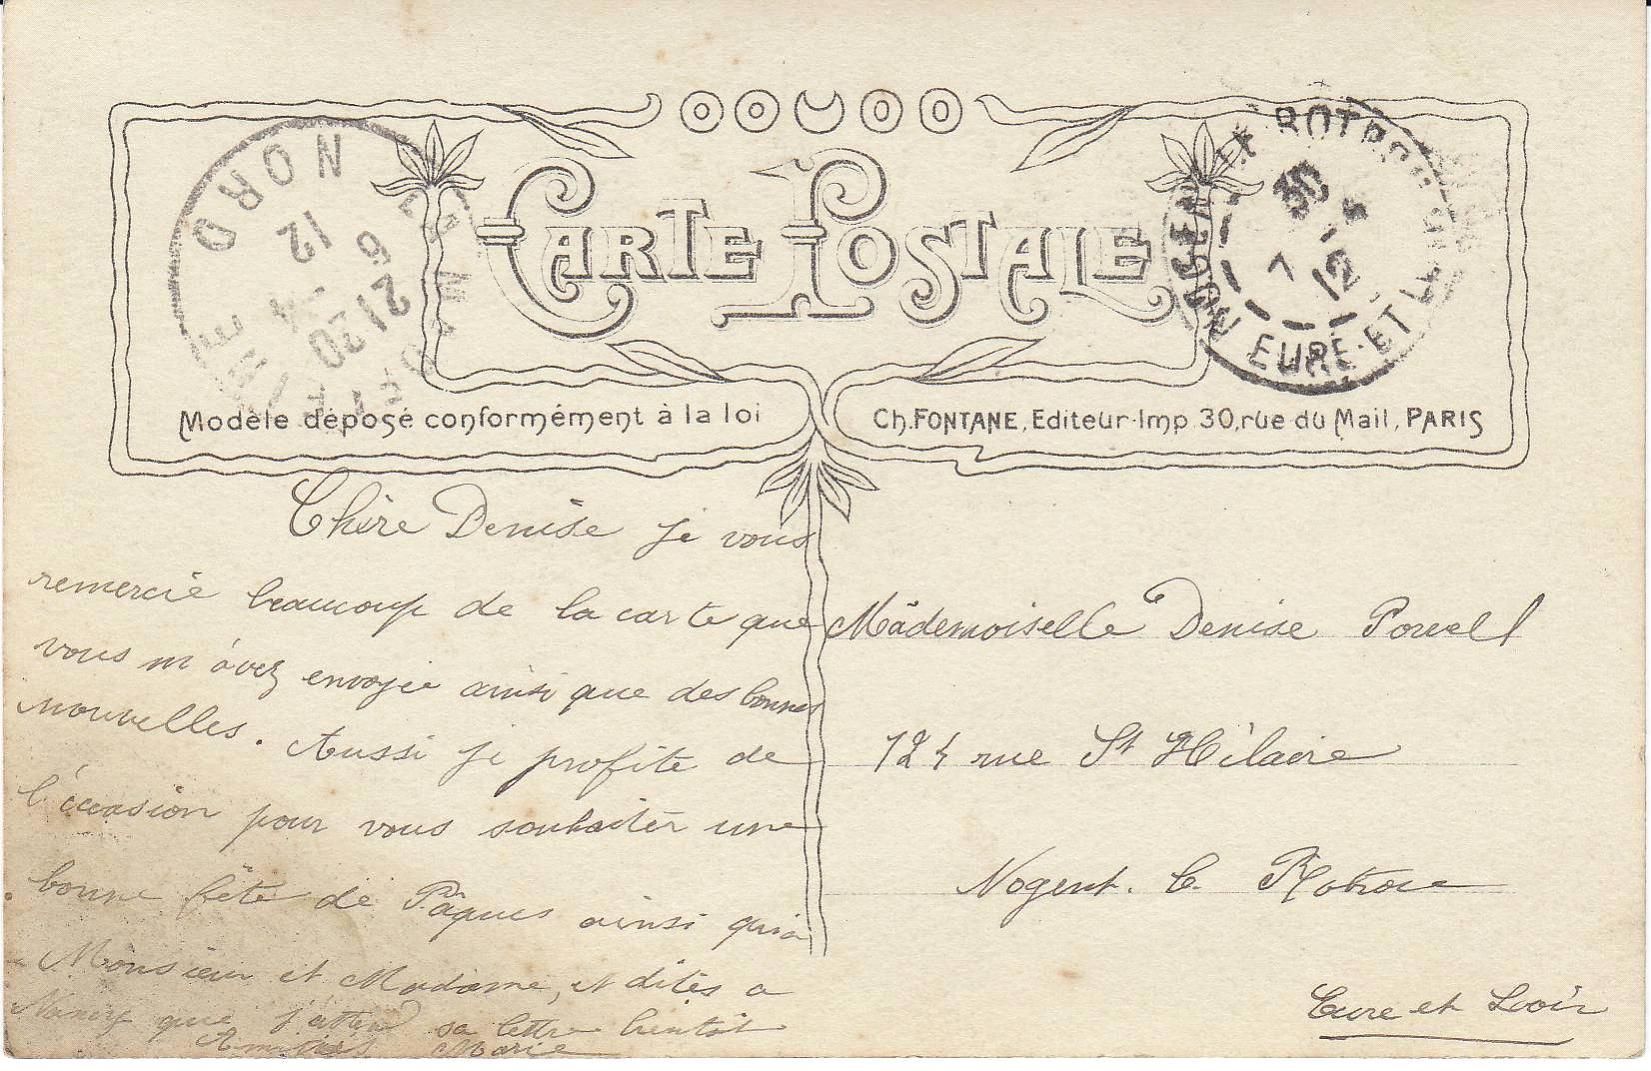 CARTE POSTALE
NORD
21 20
6 - 4
12
NOGENT-LE-ROTROU
EURE-ET-L
7 30
7 - 4
12
Modèle déposé conformément à la loi
Ch. FONTANE, Editeur-Imp 30, rue du Mail, PARIS
Chère Denise je vous
remercie beaucoup de la carte que
vous m'avez envoyée ainsi que des bonnes
nouvelles. Aussi je profite de
l'occasion pour vous souhaiter une
bonne fête de Pâques ainsi qu'a
Monsieur et Madame, et dites a
Nancy que j'attend sa lettre bientôt
Amitiés Marie
Mademoiselle Denise Powell
124 rue St Hilaire
Nogent. l. Rotrou
Eure et Loir